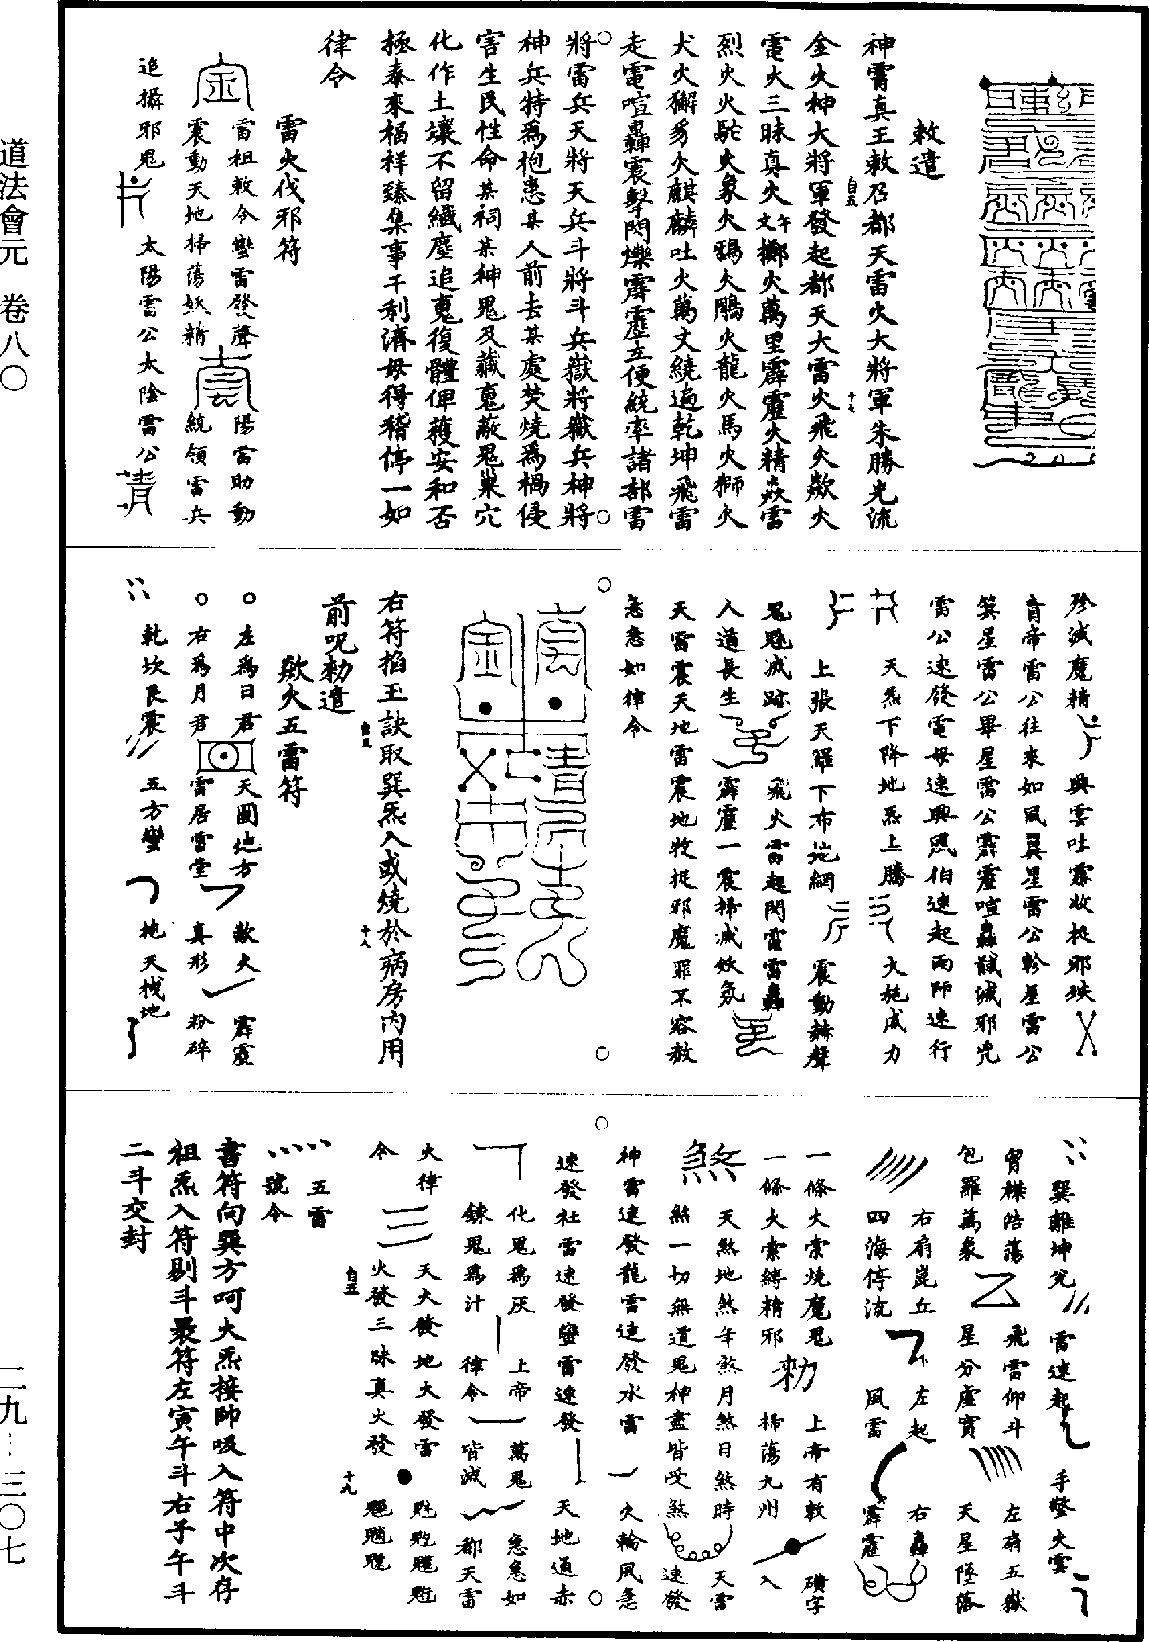 敕遣
神霄真王敕召都天雷火大將軍朱勝光流
金火神大將軍發起都天大雷火飛火歘火
電火三昧真火文午擲火萬里霹靂火精焱雷
烈火火駝火象火鴉火鵰火龍火馬火獅火
犬火獬豸火麒麟吐火萬丈繞遍乾坤飛雷
走電喧轟震擊閃爍霹靂立便統率諸部雷
將雷兵天將天兵斗將斗兵嶽將嶽兵神將
神兵特爲抱患某人前去某處焚燒爲禍侵
害生民性命某祠某神鬼及藏䰟蔽鬼巢穴
化作土壤不留纖塵追䰟復體俾穫安和否
極泰來福祥臻集事干利濟毋得稽停一如
律令
雷火伐邪符
雷祖敕令蠻雷發聲
震動天地掃蕩妖精
陽雷助動
統領雷兵
追攝邪鬼
太陽雷公太陰雷公
殄滅魔精
興雲吐霧收捉邪殃
青帝雷公往來如風翼星雷公軫星雷公
箕星雷公畢星雷公霹靂喧轟馘滅邪兇
雷公速發電母速興風伯速起雨師速行
天炁下降地炁上騰
大施威力
上張天羅下布地網
震動赫聲
鬼魅滅跡
飛火雷起閃電雷轟
人道長生
霹靂一震掃滅妖氛
天雷震天地雷震地收捉邪魔罪不容赦
急急如律令
右符掐玉訣取巽炁入或燒於病房内用
前呪勑遣
歘火五雷符
左爲日君
天圓地方
歘火
霹靂
右爲月君
雷居雷堂
真形
粉碎
乾坎艮震
五方蠻
地天機地
巽離坤兌
雷速起
手擎火雲
胷襟浩蕩
飛雷仰斗
左廂五嶽
包羅萬象
星分虛實
天星墜落
右廂崑丘
左起
右轟
四海停流
風雷
霹靂
一條火索燒魔鬼
上帝有敕
礩字
一條火索縛精邪
掃蕩九州
入
煞
天煞地煞年煞月煞日煞時
天雷
煞一切無道鬼神盡皆受煞
速發
神雷速發龍雷速發水雷
火輪風急
速發社雷速發蠻雷速發
天地通赤
化鬼爲灰
上帝
萬鬼
急急如
鍊鬼爲汁
律令
皆滅
都天雷
火律
天火發地火發雷
令
火發三昧真火發
五雷
號令
書符向巽方呵火炁接帥吸入符中次存
祖炁入符剔斗最符左寅午斗右子午斗
二斗交封
道法會元　卷八〇
二九—三〇七